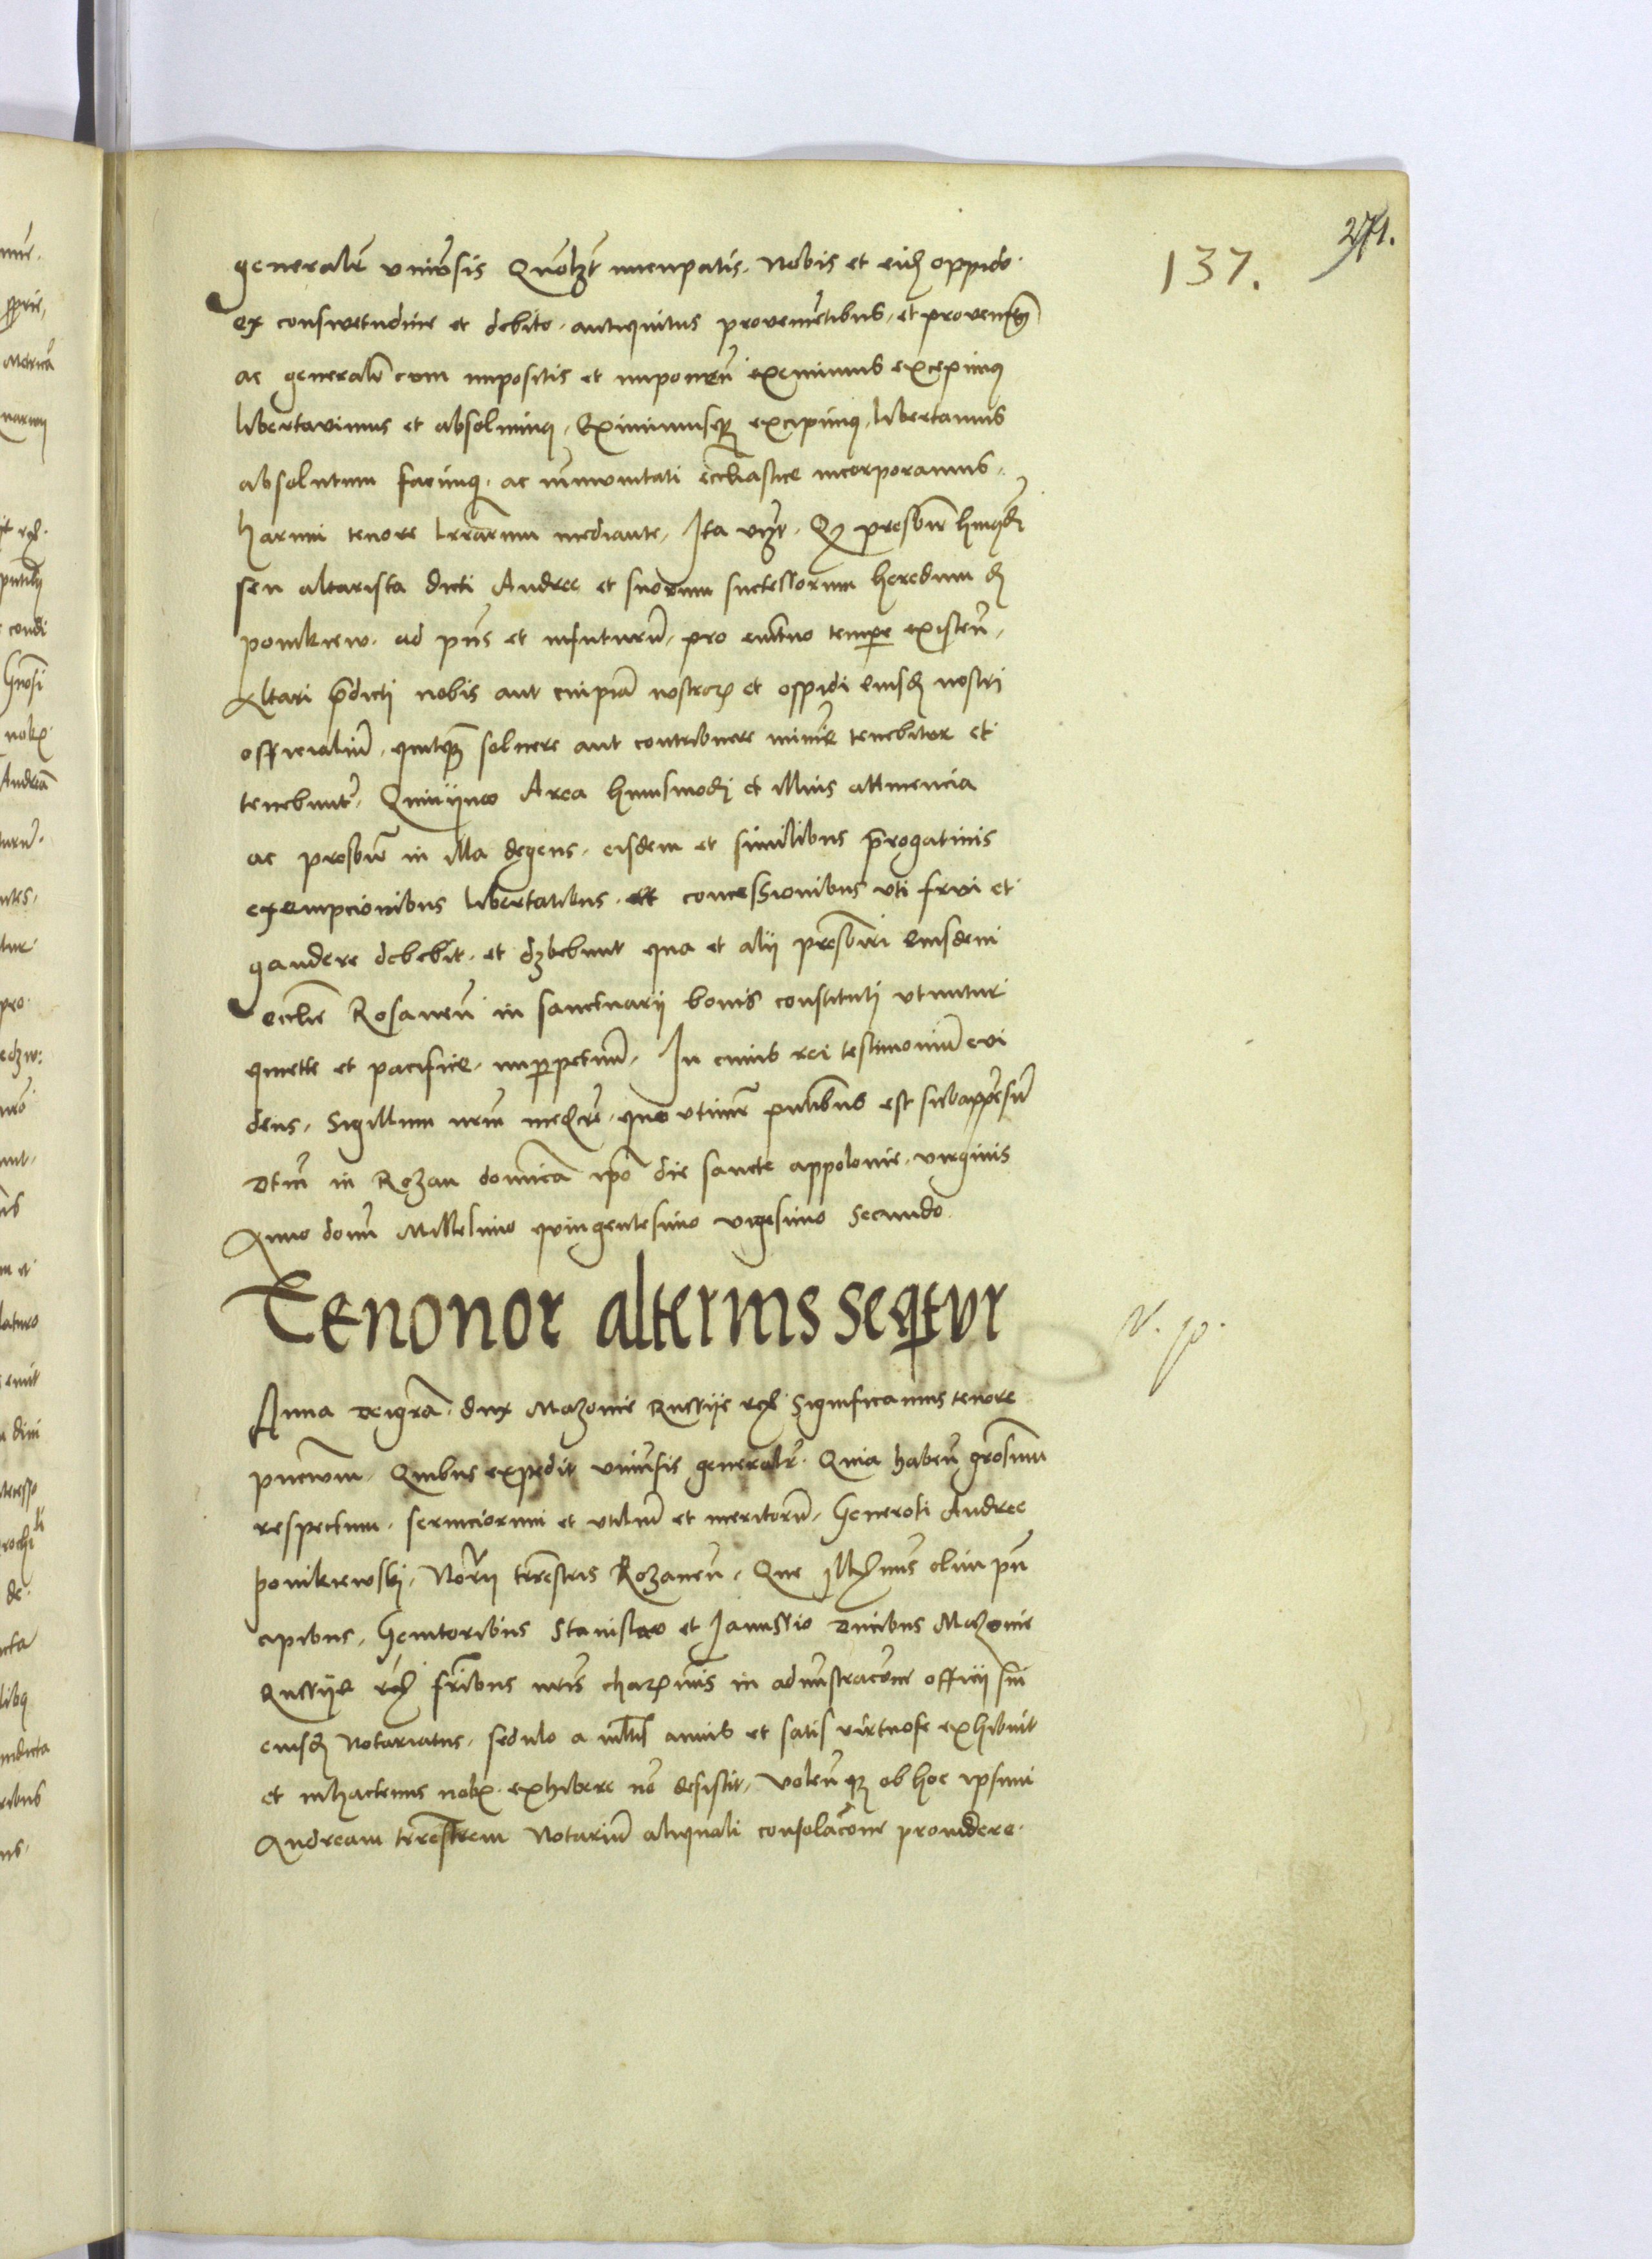 271.
137.
generalr̃ uniṽsis Quolzt nuncupatis. Nobis et eidẽ oppido
ex consuetudine et debito. antiquitus provenientibus. et provenien
ac generalr̃ cum impositis et imponen̄ exemimus excepimus
libertavimus et absolvimus. Eximimusqȝ excipimus. libertamus
absolutum facimus. ac immunitati ecc̃liastice incorporamus.
harum tenore lr̃rarum mediante. Ita vizt. Qȝ presbir̃ huiusmodi
seu altarista dicti Andree et suorum successorum heredum de
ponikiew. ad pñs et infuturũ. pro tempore existeñ.
Altari p̃dicti nobis aut cuipiã nostrorꝫ et oppidi eiusdẽ nostri
officialiũ. quitqȝ solvere aut contribuere minie tenebitur et
tenebuntr̃. Area huiusmodi et illius attinencia
ac presbir̃ in illa degens. eisdem et similibus p̃rogativis
exempcionibus libertatibus. et concessionibus uti frui et
gaudere debebit. et debebunt qua et alij presbiri eiusdem
ecclie Rosaneñ in sanctuarij bonis constituti utuntur
quiette et pacifice. imperpetuũ. In cuius rei testimoniũ evi
dens. Sigillum nr̃m quo utimur pñtibus est subappressũ
Dtũ in Rozan dominica ipõ die sancte appolonie. virginis
Anno domĩ Millesimo quingentesimo vigesimo Secundo.
Tenonor alterius seqtur
N. p.
Anna Dei gr̃a. dux Mazovie Russije rcꝫ. Significamus tenore
pñcium. Quibus expedit uniṽsis generalr̃. Quia habeñ grosum
respectum. serviciorum et utiliũ et meritorũ. Generosi Andree
ponikiewskj. Nor̃ij trr̃estris Rozaneñ. Que Illr̃imis olim prin
cipibus. Genitoribus Stanislao et Janussio Ducibus Mazovie
Russije rcꝫ fr̃ibus nr̃is charꝫmis in admĩstracõne officij sui
eiusdẽ Notariatus. sedulo a mltis annis et satis virtuose exhibuit
et inhactenus nobꝫ. exhibere nõ desistit. Voleñqȝ ob hoc ipsum
Andream trr̃estrem Notariũ aliquali consolacõne providere.